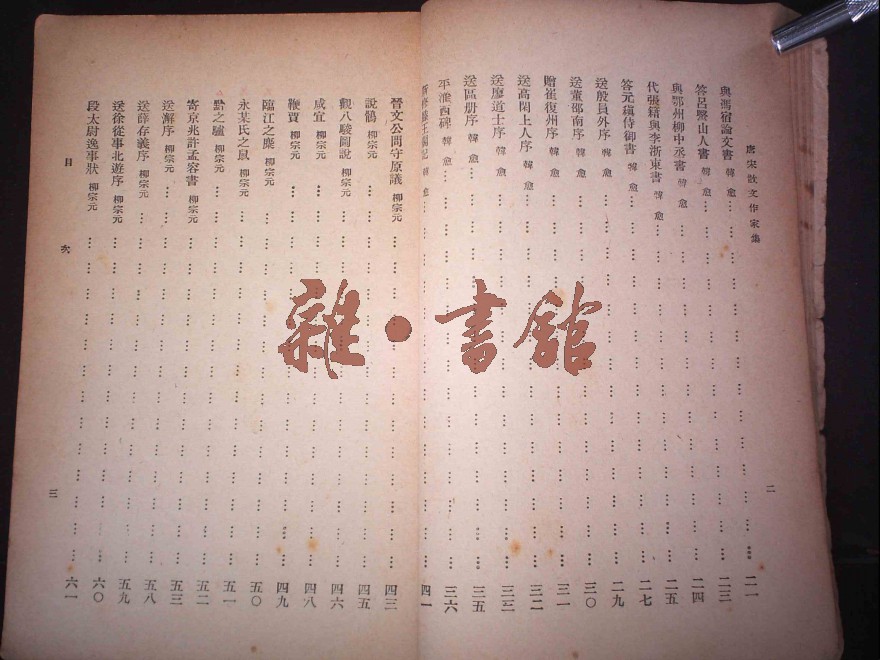 唐宋散文作家集
二
與馮宿論文書 韓愈 二一
答呂毉山人書 韓愈 二三
與鄂州柳中丞書 韓愈 二四
代張籍與李浙東書 韓愈 二五
答元稹侍御書 韓愈 二七
送殷員外序 韓愈 二九
送董邵南序 韓愈 三〇
贈崔復州序 韓愈 三一
送高閑上人序 韓愈 三二
送廖道士序 韓愈 三三
送區册序 韓愈 三五
平淮西碑 韓愈 三六
新修滕王閣記 韓愈 四一
晉文公問守原議 柳宗元 四三
說鶻 柳宗元 四五
觀八駿圖說 柳宗元 四六
咸宜 柳宗元 四八
鞭賈 柳宗元 四九
臨江之麋 柳宗元 五〇
永某氏之鼠 柳宗元 五一
黔之驢 柳宗元 五二
寄京兆許孟容書 柳宗元 五三
送澥序 柳宗元 五八
送薛存義序 柳宗元 五九
送徐從事北遊序 柳宗元 六〇
段太尉逸事狀 柳宗元 六一
目次
三
雜·書館